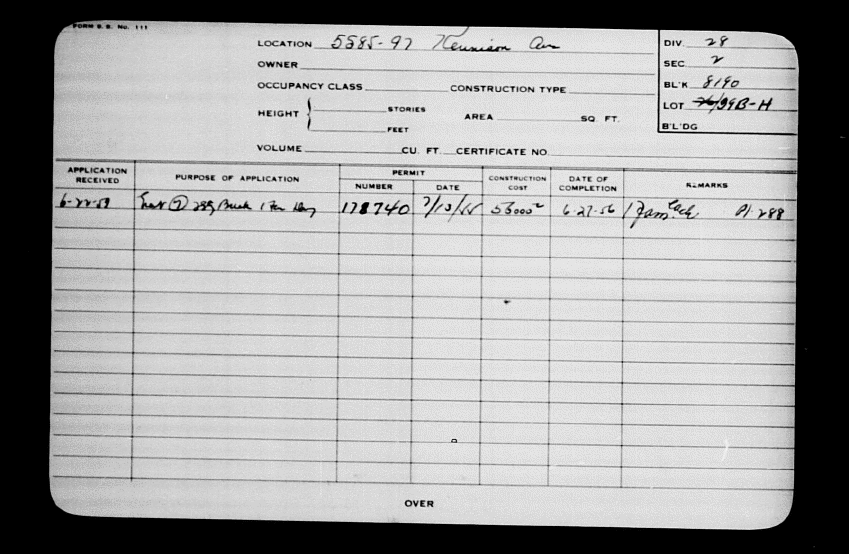 FORM B. B. No. 111
LOCATION 5585-97 Kennison Ave
OWNER
OCCUPANCY CLASS CONSTRUCTION TYPE
HEIGHT { STORIES
FEET
AREA SQ. FT.
VOLUME CU. FT. CERTIFICATE NO.
DIV. 28
SEC. 2
BL'K 8190
LOT 26/39B-H
B'L'DG
APPLICATION RECEIVED PURPOSE OF APPLICATION PERMIT NUMBER DATE CONSTRUCTION COST DATE OF COMPLETION REMARKS
Brick 1 Fam 178740 7/13/55 56000 6-27-56 1 Fam. Each Pl. 288
OVER